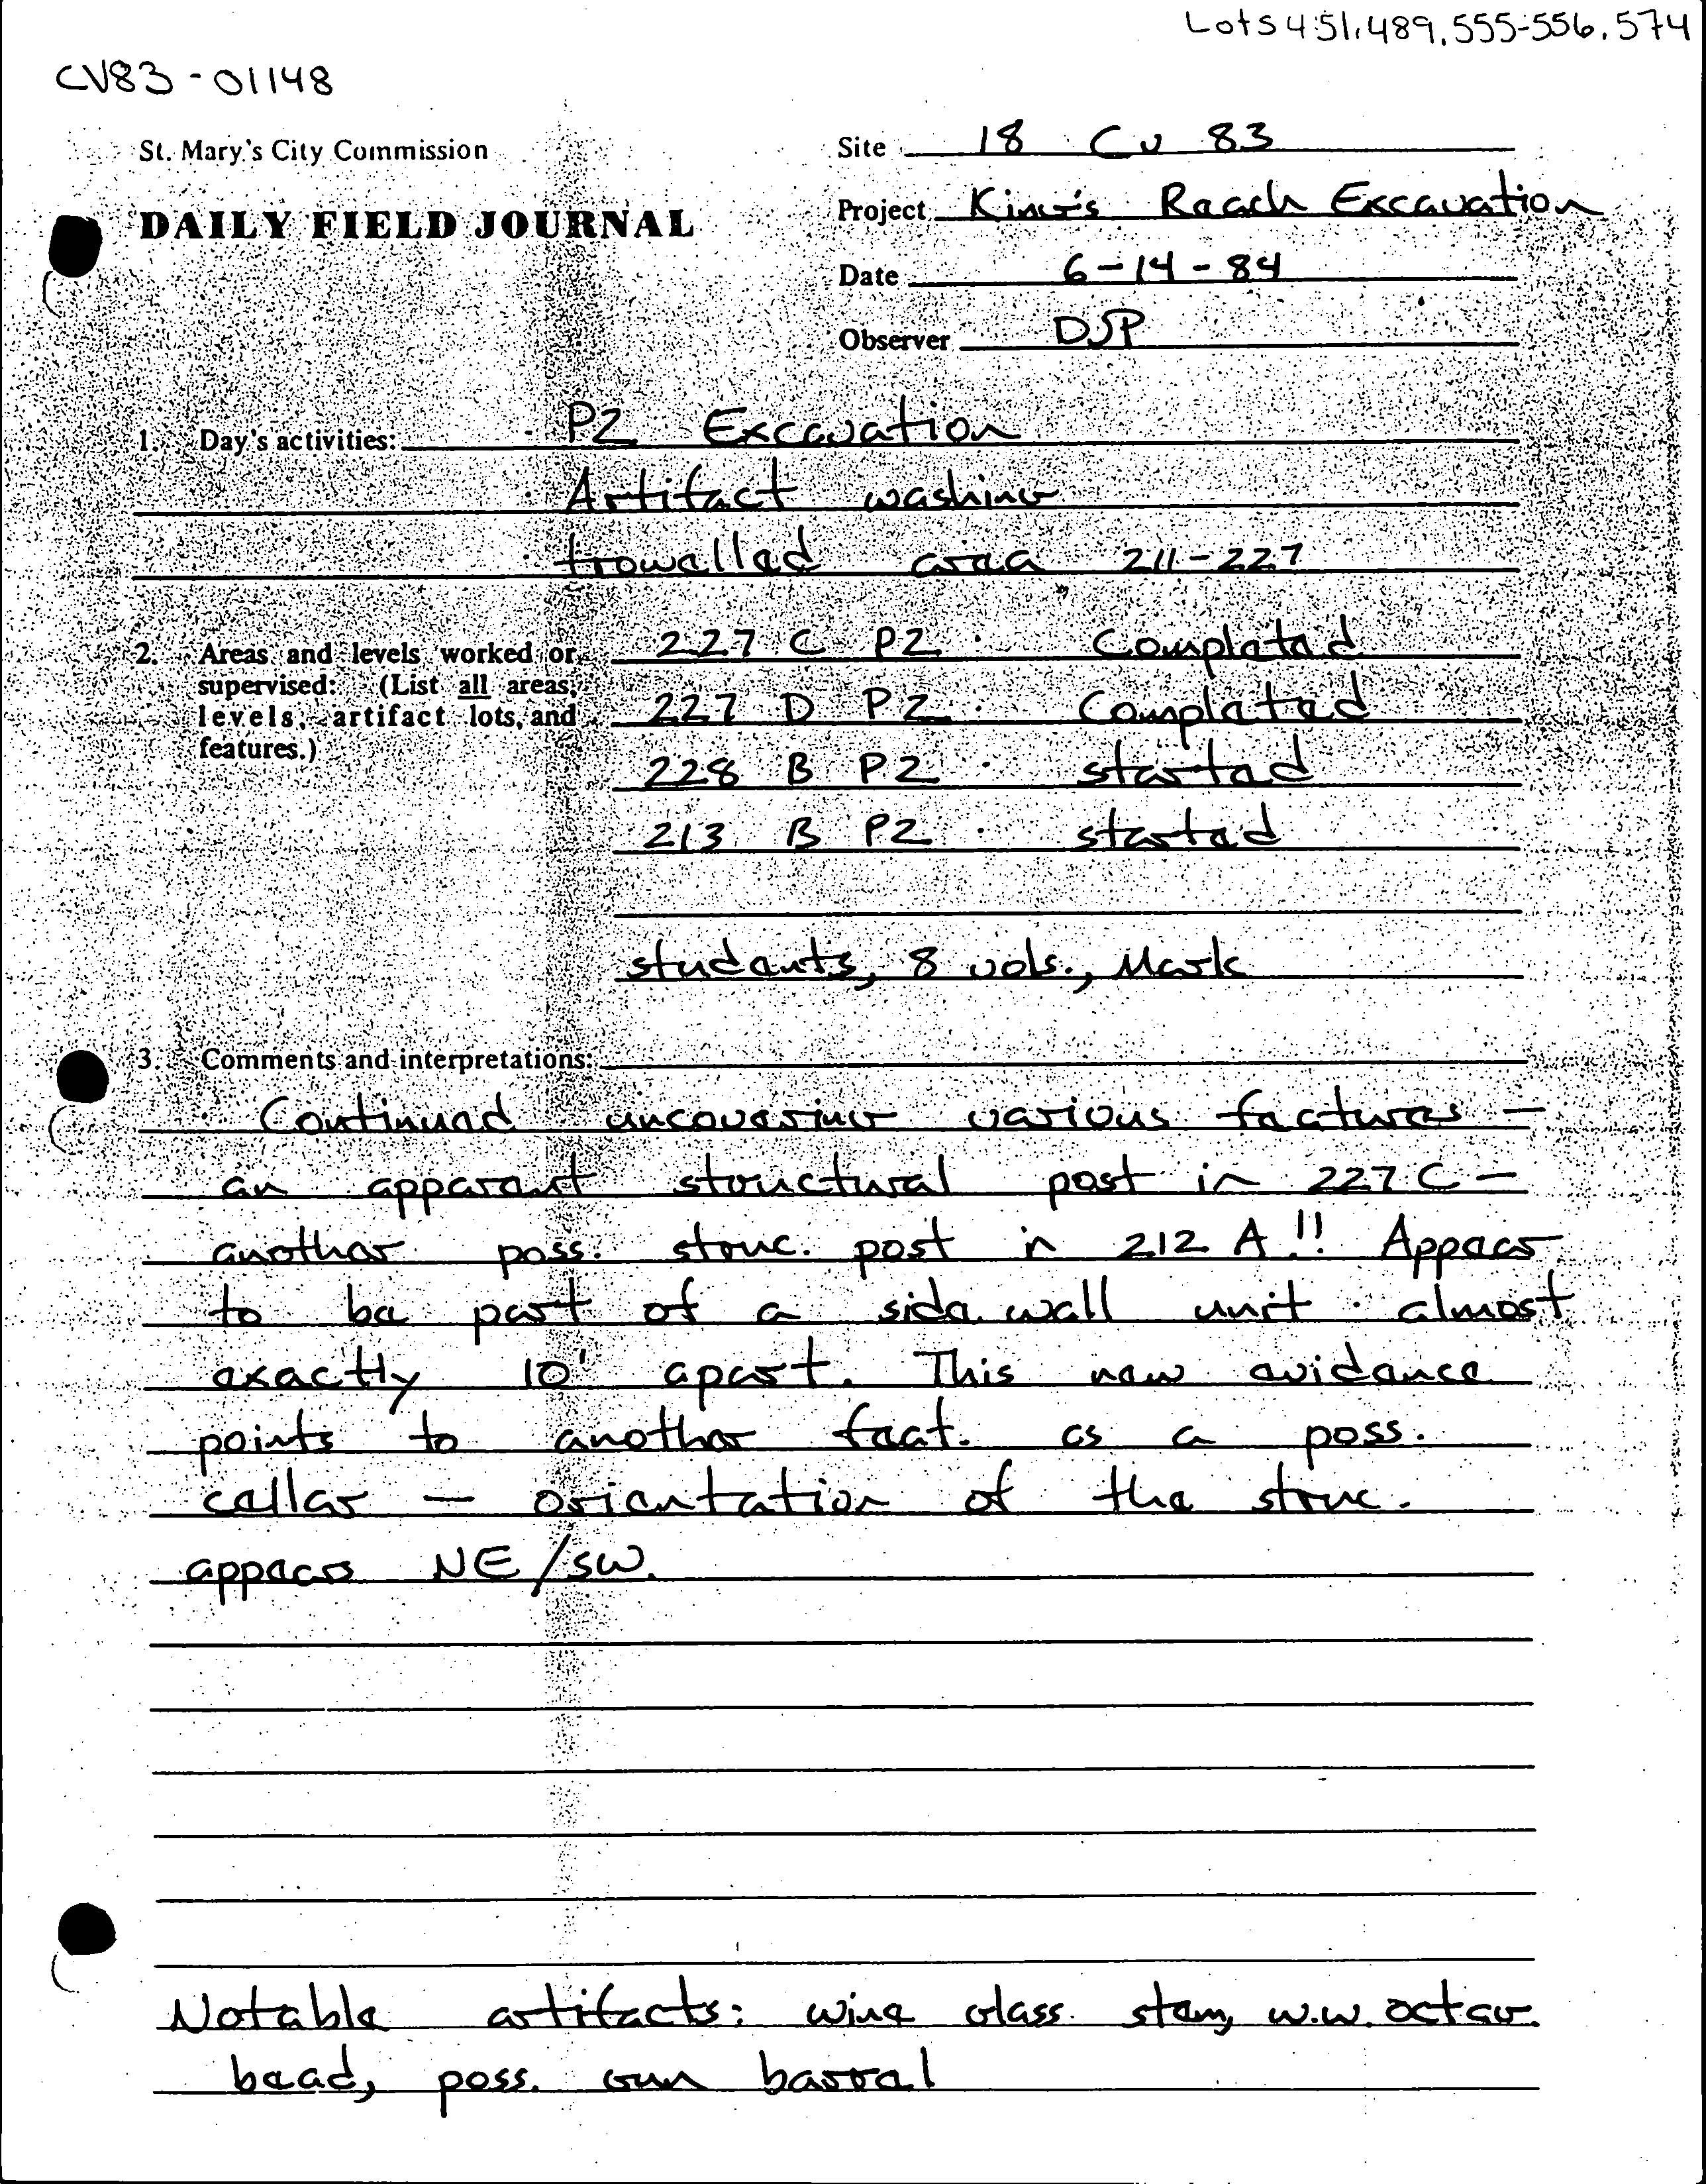 Lots 451, 489, 555-556, 574
CV83-01148
St. Mary's City Commission
Site 18 Cv 83
DAILY FIELD JOURNAL
Project King's Reach Excavation
Date 6-14-84
Observer DJP
1. Day's activities: PZ Excavation
Artifact washing
trowelled area 211-227
2. Areas and levels worked or supervised: (List all areas, levels, artifact lots, and features.)
227 C PZ Completed
227 D PZ Completed
228 B PZ started
213 B PZ started
students, 8 vols., Mark
3. Comments and interpretations:
Continued uncovering various features -
an apparent structural post in 227 C -
another poss. struc. post in 212 A!! Appear
to be part of a side wall unit almost
exactly 10' apart. This new evidence
points to another feat. as a poss.
cellar - orientation of the struc.
appears NE/SW.
Notable artifacts: wine glass stem, w.w. octag.
bead, poss. gun barrel